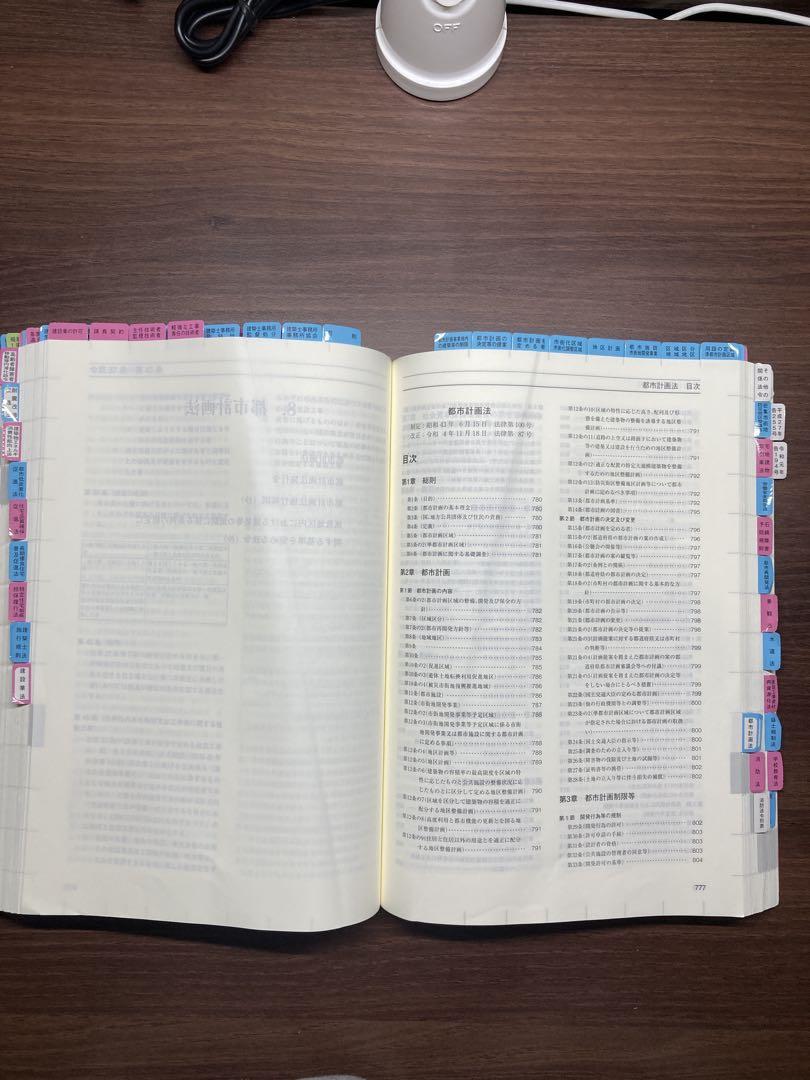 OFF
建設業の許可
請負契約
主任技術者
監理技術者
軽微な工事
建築士事務所
監督処分
建築士事務所
事務所協会
罰則
都市計画の
決定等の提案
都市計画を
定める者
市街化区域
市街化調整区域
地区計画
都市施設
市街地開発事業
区域区分
地域地区
用語の定義
準都市計画区域
都市計画法 目次
都市計画法
制定:昭和 43 年 6 月 15 日 法律第 100 号
改正:令和 4 年 11 月 18 日 法律第 87 号
目次
第1章 総則
第1条(目的) 780
第2条(都市計画の基本理念) 780
第3条(国,地方公共団体及び住民の責務) 780
第4条(定義) 780
第5条(都市計画区域) 781
第5条の2(準都市計画区域) 781
第6条(都市計画に関する基礎調査) 781
第2章 都市計画
第1節 都市計画の内容
第6条の2(都市計画区域の整備,開発及び保全の方
針) 782
第7条(区域区分) 782
第7条の2(都市再開発方針等) 782
第8条(地域地区) 783
第9条 784
第10条
第10条の2(促進区域) 785
第10条の3(遊休土地転換利用促進地区) 786
第10条の4(被災市街地復興推進地域) 786
第11条(都市施設) 786
第12条(市街地開発事業) 787
第12条の2(市街地開発事業等予定区域) 788
第12条の3(市街地開発事業等予定区域に係る市街
地開発事業又は都市施設に関する都市計画
に定める事項) 788
第12条の4(地区計画等) 788
第12条の5(地区計画) 789
第12条の6(建築物の容積率の最高限度を区域の特
性に応じたものと公共施設の整備状況に応
じたものとに区分して定める地区整備計画) 790
第12条の7(区域を区分して建築物の容積を適正に
配分する地区整備計画) 791
第12条の8(高度利用と都市機能の更新とを図る地
区整備計画) 791
第12条の9(住居と住居以外の用途とを適正に配分
する地区整備計画) 791
第12条の10(区域の特性に応じた高さ,配列及び形
態を備えた建築物の整備を誘導する地区整
備計画) 791
第12条の11(道路の上空又は路面下において建築物
等の建築又は建設を行うための地区整備計
画) 792
第12条の12(適正な配置の特定大規模建築物を整備
するための地区整備計画) 792
第12条の13(防災街区整備地区計画等について都市
計画に定めるべき事項) 792
第13条(都市計画基準) 792
第14条(都市計画の図書) 795
第2節 都市計画の決定及び変更
第15条(都市計画を定める者) 796
第15条の2(都道府県の都市計画の案の作成) 796
第16条(公聴会の開催等) 796
第17条(都市計画の案の縦覧等) 797
第17条の2(条例との関係) 797
第18条(都道府県の都市計画の決定) 797
第18条の2(市町村の都市計画に関する基本的な方
針) 797
第19条(市町村の都市計画の決定) 798
第20条(都市計画の告示等) 798
第21条(都市計画の変更) 798
第21条の2(都市計画の決定等の提案) 798
第21条の3(計画提案に対する都道府県又は市町村
の判断等) 799
第21条の4(計画提案を踏まえた都市計画の案の都
道府県都市計画審議会等への付議) 799
第21条の5(計画提案を踏まえた都市計画の決定等
をしない場合にとるべき措置) 799
第22条(国土交通大臣の定める都市計画) 799
第23条(他の行政機関等との調整等) 800
第23条の2(準都市計画区域について都市計画区域
が指定された場合における都市計画の取扱
い) 800
第24条(国土交通大臣の指示等) 800
第25条(調査のための立入等) 801
第26条(障害物の伐除及び土地の試掘等) 801
第27条(証明書等の携帯) 802
第28条(土地の立入等に伴う損失の補償) 802
第3章 都市計画制限等
第1節 開発行為等の規制
第29条(開発行為の許可) 802
第30条(許可申請の手続) 803
第31条(設計者の資格) 803
第32条(公共施設の管理者の同意等) 803
第33条(開発許可の基準) 804
777
その他の
関係法令
平成27年
告255号
令和元年
告194号
景観法
水道法
都市計画法
学校教育法
消防法
消防法令別表
建築士法
施行規則
建設業法